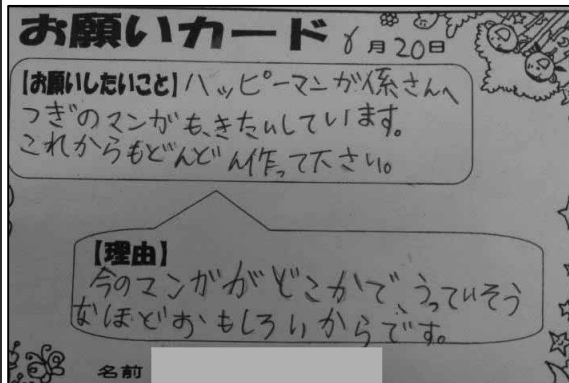 お願いカード 8月20日
【お願いしたいこと】ハッピーマンガ係さんへ
つぎのマンガも、きたいしています。
これからもどんどん作って下さい。
【理由】
今のマンガがどこかで、うっていそう
なほどおもしろいからです。
名前